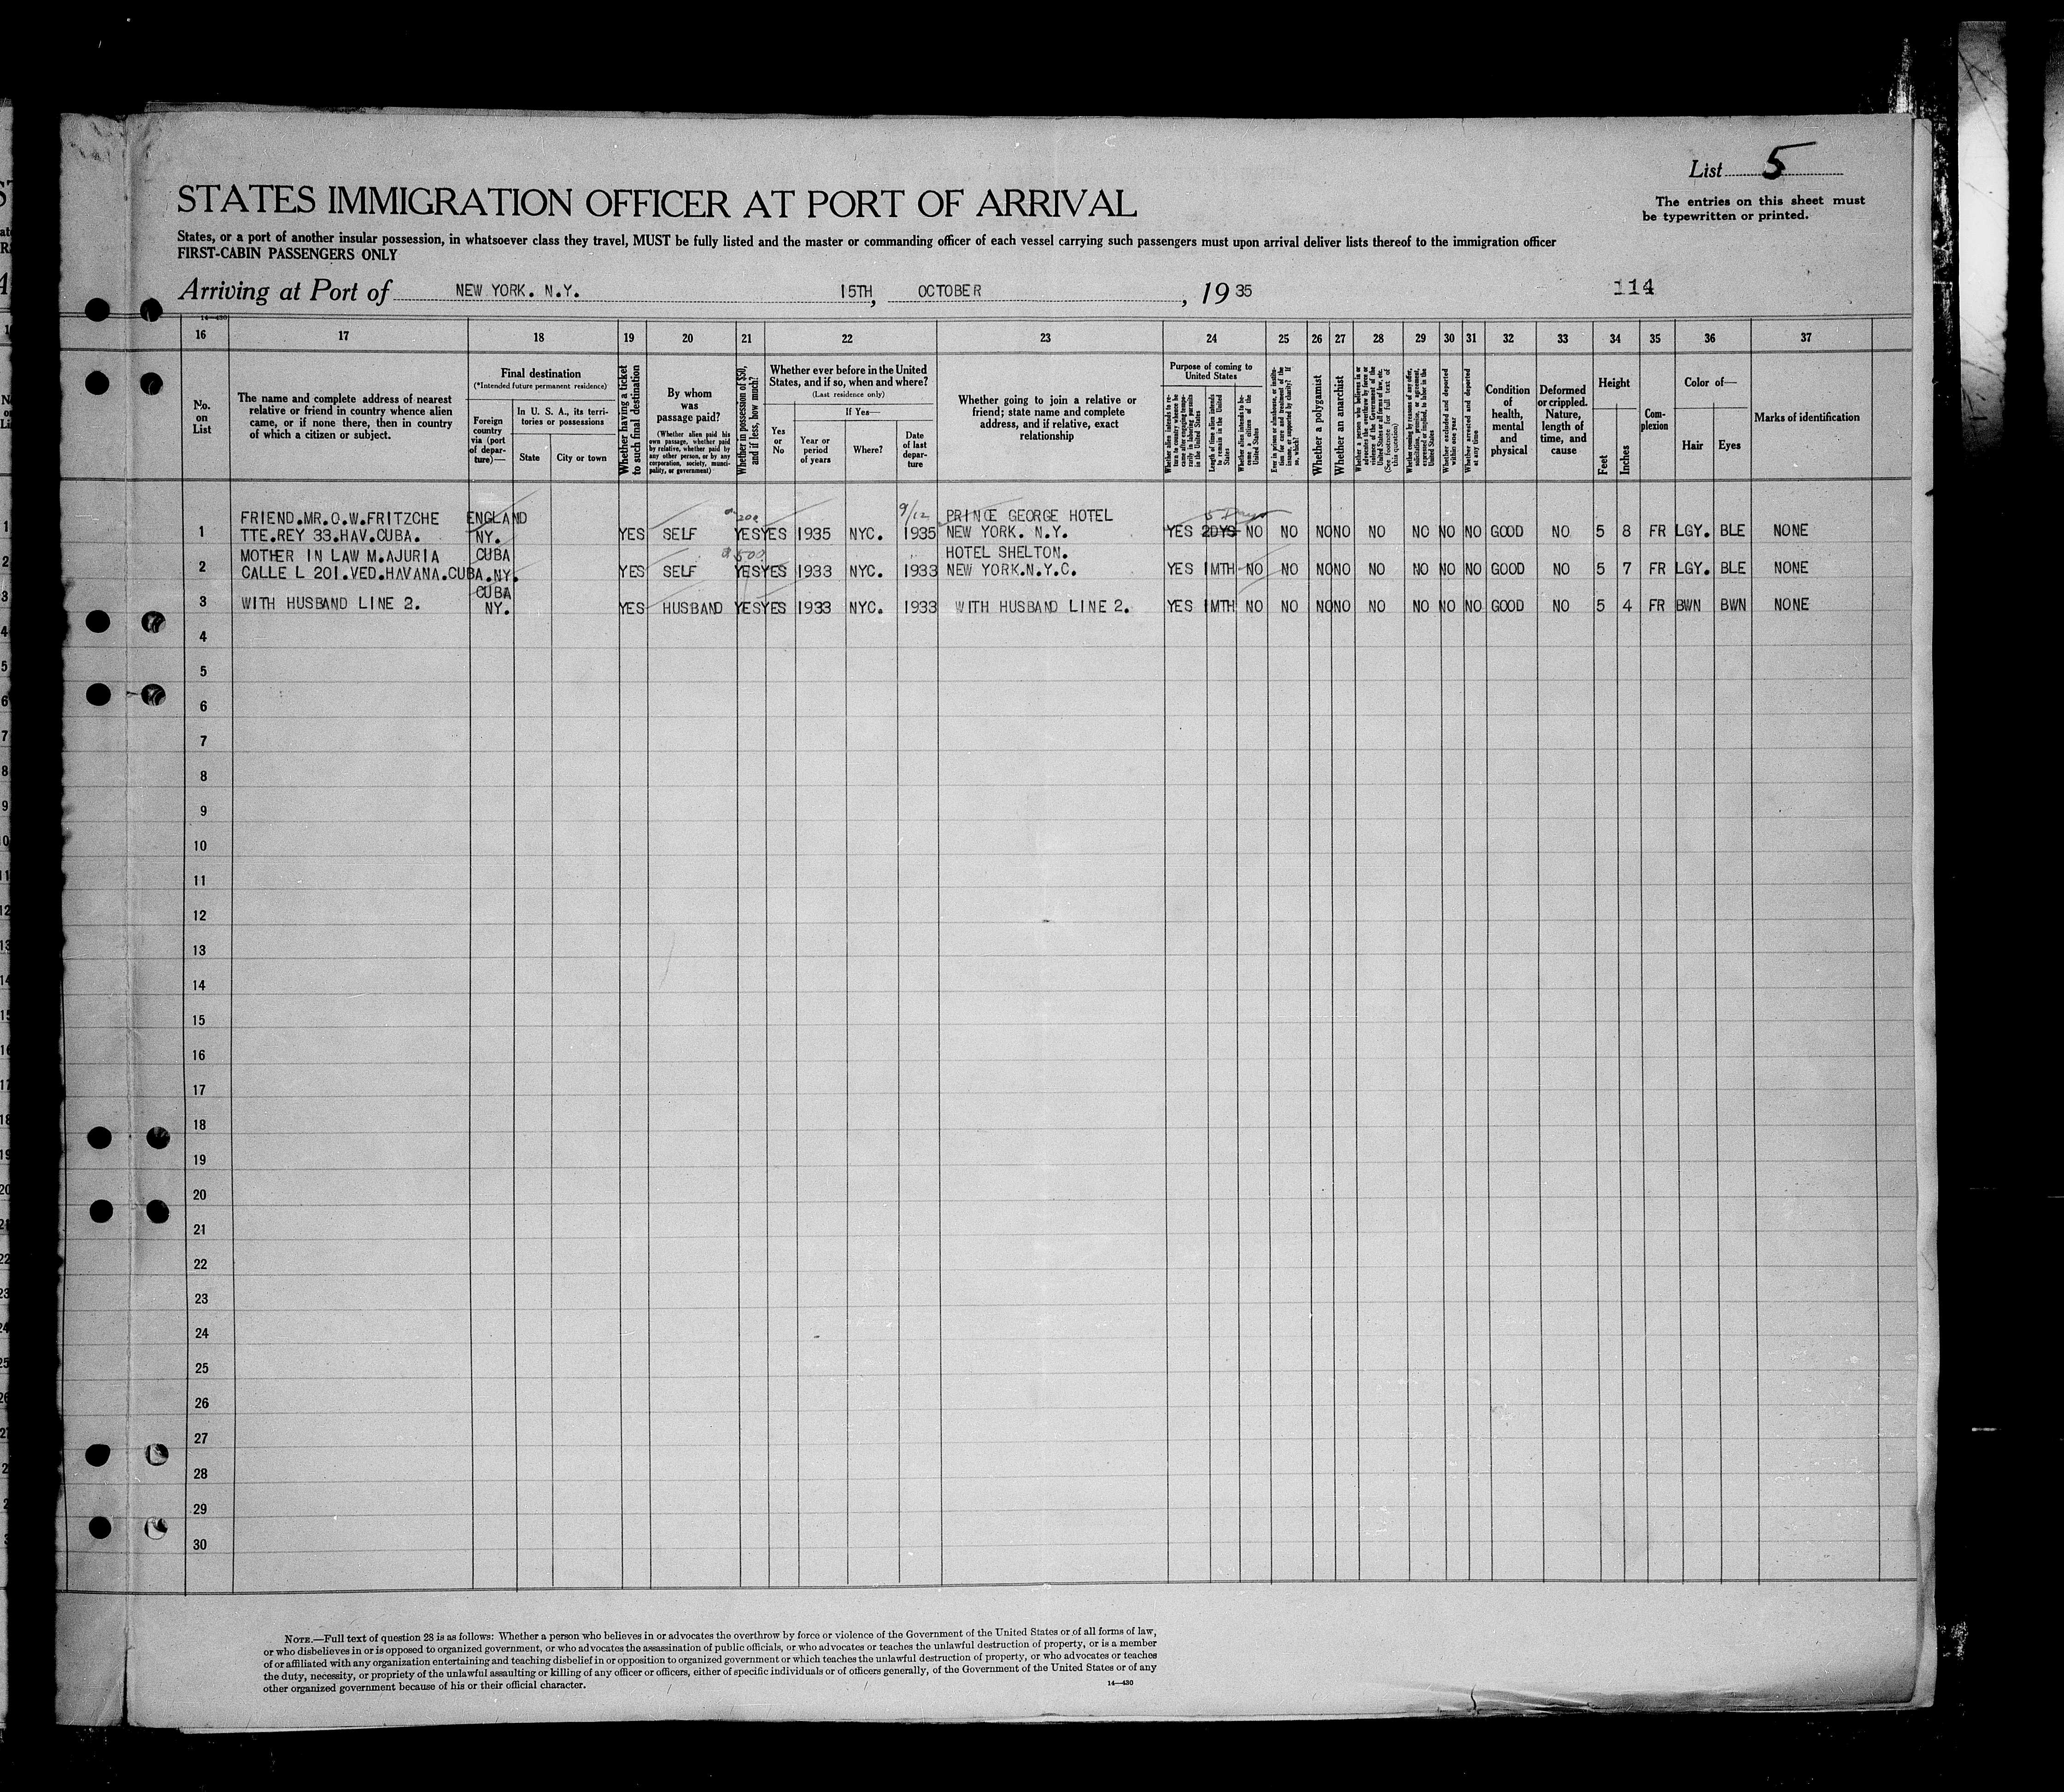 List 5
STATES IMMIGRATION OFFICER AT PORT OF ARRIVAL
The entries on this sheet must
be typewritten or printed.
States, or a port of another insular possession, in whatsoever class they travel, MUST be fully listed and the master or commanding officer of each vessel carrying such passengers must upon arrival deliver lists thereof to the immigration officer
FIRST-CABIN PASSENGERS ONLY
Arriving at Port of NEW YORK. N.Y. 15TH, OCTOBER, 1935
114
14—430
16 17 18 19 20 21 22 23 24 25 26 27 28 29 30 31 32 33 34 35 36 37
No. on List
The name and complete address of nearest
relative or friend in country whence alien
came, or if none there, then in country
of which a citizen or subject.
Final destination
(*Intended future permanent residence)
Foreign country via (port of departure)—
In U. S. A., its territories or possessions
State
City or town
Whether having a ticket to such final destination
By whom was passage paid?
(Whether alien paid his own passage, whether paid by relative, whether paid by any other person, or by any corporation, society, municipality, or government)
Whether in possession of $50, and if less, how much?
Whether ever before in the United States, and if so, when and where?
(Last residence only)
Yes or No
If Yes—
Year or period of years
Where?
Date of last departure
Whether going to join a relative or
friend; state name and complete
address, and if relative, exact
relationship
Purpose of coming to United States
Whether alien intends to return to country whence he came after engaging temporarily in laboring pursuits in the United States
Length of time alien intends to remain in the United States
Whether alien intends to become a citizen of the United States
Ever in prison or almshouse, or institution for care and treatment of the insane, or supported by charity? If so, which?
Whether a polygamist
Whether an anarchist
Whether a person who believes in or advocates the overthrow by force or violence of the Government of the United States or all forms of law, etc. (See footnote for full text of this question)
Whether coming by reason of any offer, solicitation, promise, or agreement, expressed or implied, to labor in the United States
Whether excluded and deported within one year
Whether arrested and deported at any time
Condition of health, mental and physical
Deformed or crippled. Nature, length of time, and cause
Height
Feet
Inches
Complexion
Color of—
Hair
Eyes
Marks of identification
FRIEND.MR.O.W.FRITZCHE ENGLAND 200 9/12 PRINCE GEORGE HOTEL 5 Days
1 TTE.REY 33.HAV.CUBA. NY. YES SELF YES YES 1935 NYC. 1935 NEW YORK. N.Y. YES 2DYS NO NO NO NO NO NO NO NO GOOD NO 5 8 FR LGY. BLE NONE
MOTHER IN LAW M.AJURIA CUBA 500 HOTEL SHELTON.
2 CALLE L 201.VED.HAVANA.CUBA.NY. YES SELF YES YES 1933 NYC. 1933 NEW YORK.N.Y.C. YES 1MTH NO NO NO NO NO NO NO NO GOOD NO 5 7 FR LGY. BLE NONE
CUBA
3 WITH HUSBAND LINE 2. NY. YES HUSBAND YES YES 1933 NYC. 1933 WITH HUSBAND LINE 2. YES 1MTH NO NO NO NO NO NO NO NO GOOD NO 5 4 FR BWN BWN NONE
4
5
6
7
8
9
10
11
12
13
14
15
16
17
18
19
20
21
22
23
24
25
26
27
28
29
30
NOTE.—Full text of question 28 is as follows: Whether a person who believes in or advocates the overthrow by force or violence of the Government of the United States or of all forms of law,
or who disbelieves in or is opposed to organized government, or who advocates the assassination of public officials, or who advocates or teaches the unlawful destruction of property, or is a member
of or affiliated with any organization entertaining and teaching disbelief in or opposition to organized government or which teaches the unlawful destruction of property, or who advocates or teaches
the duty, necessity, or propriety of the unlawful assaulting or killing of any officer or officers, either of specific individuals or of officers generally, of the Government of the United States or of any
other organized government because of his or their official character.
14—430